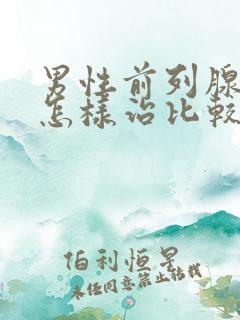 男性前列腺
怎樣治比較
伯利恒星
未经同意禁止转载